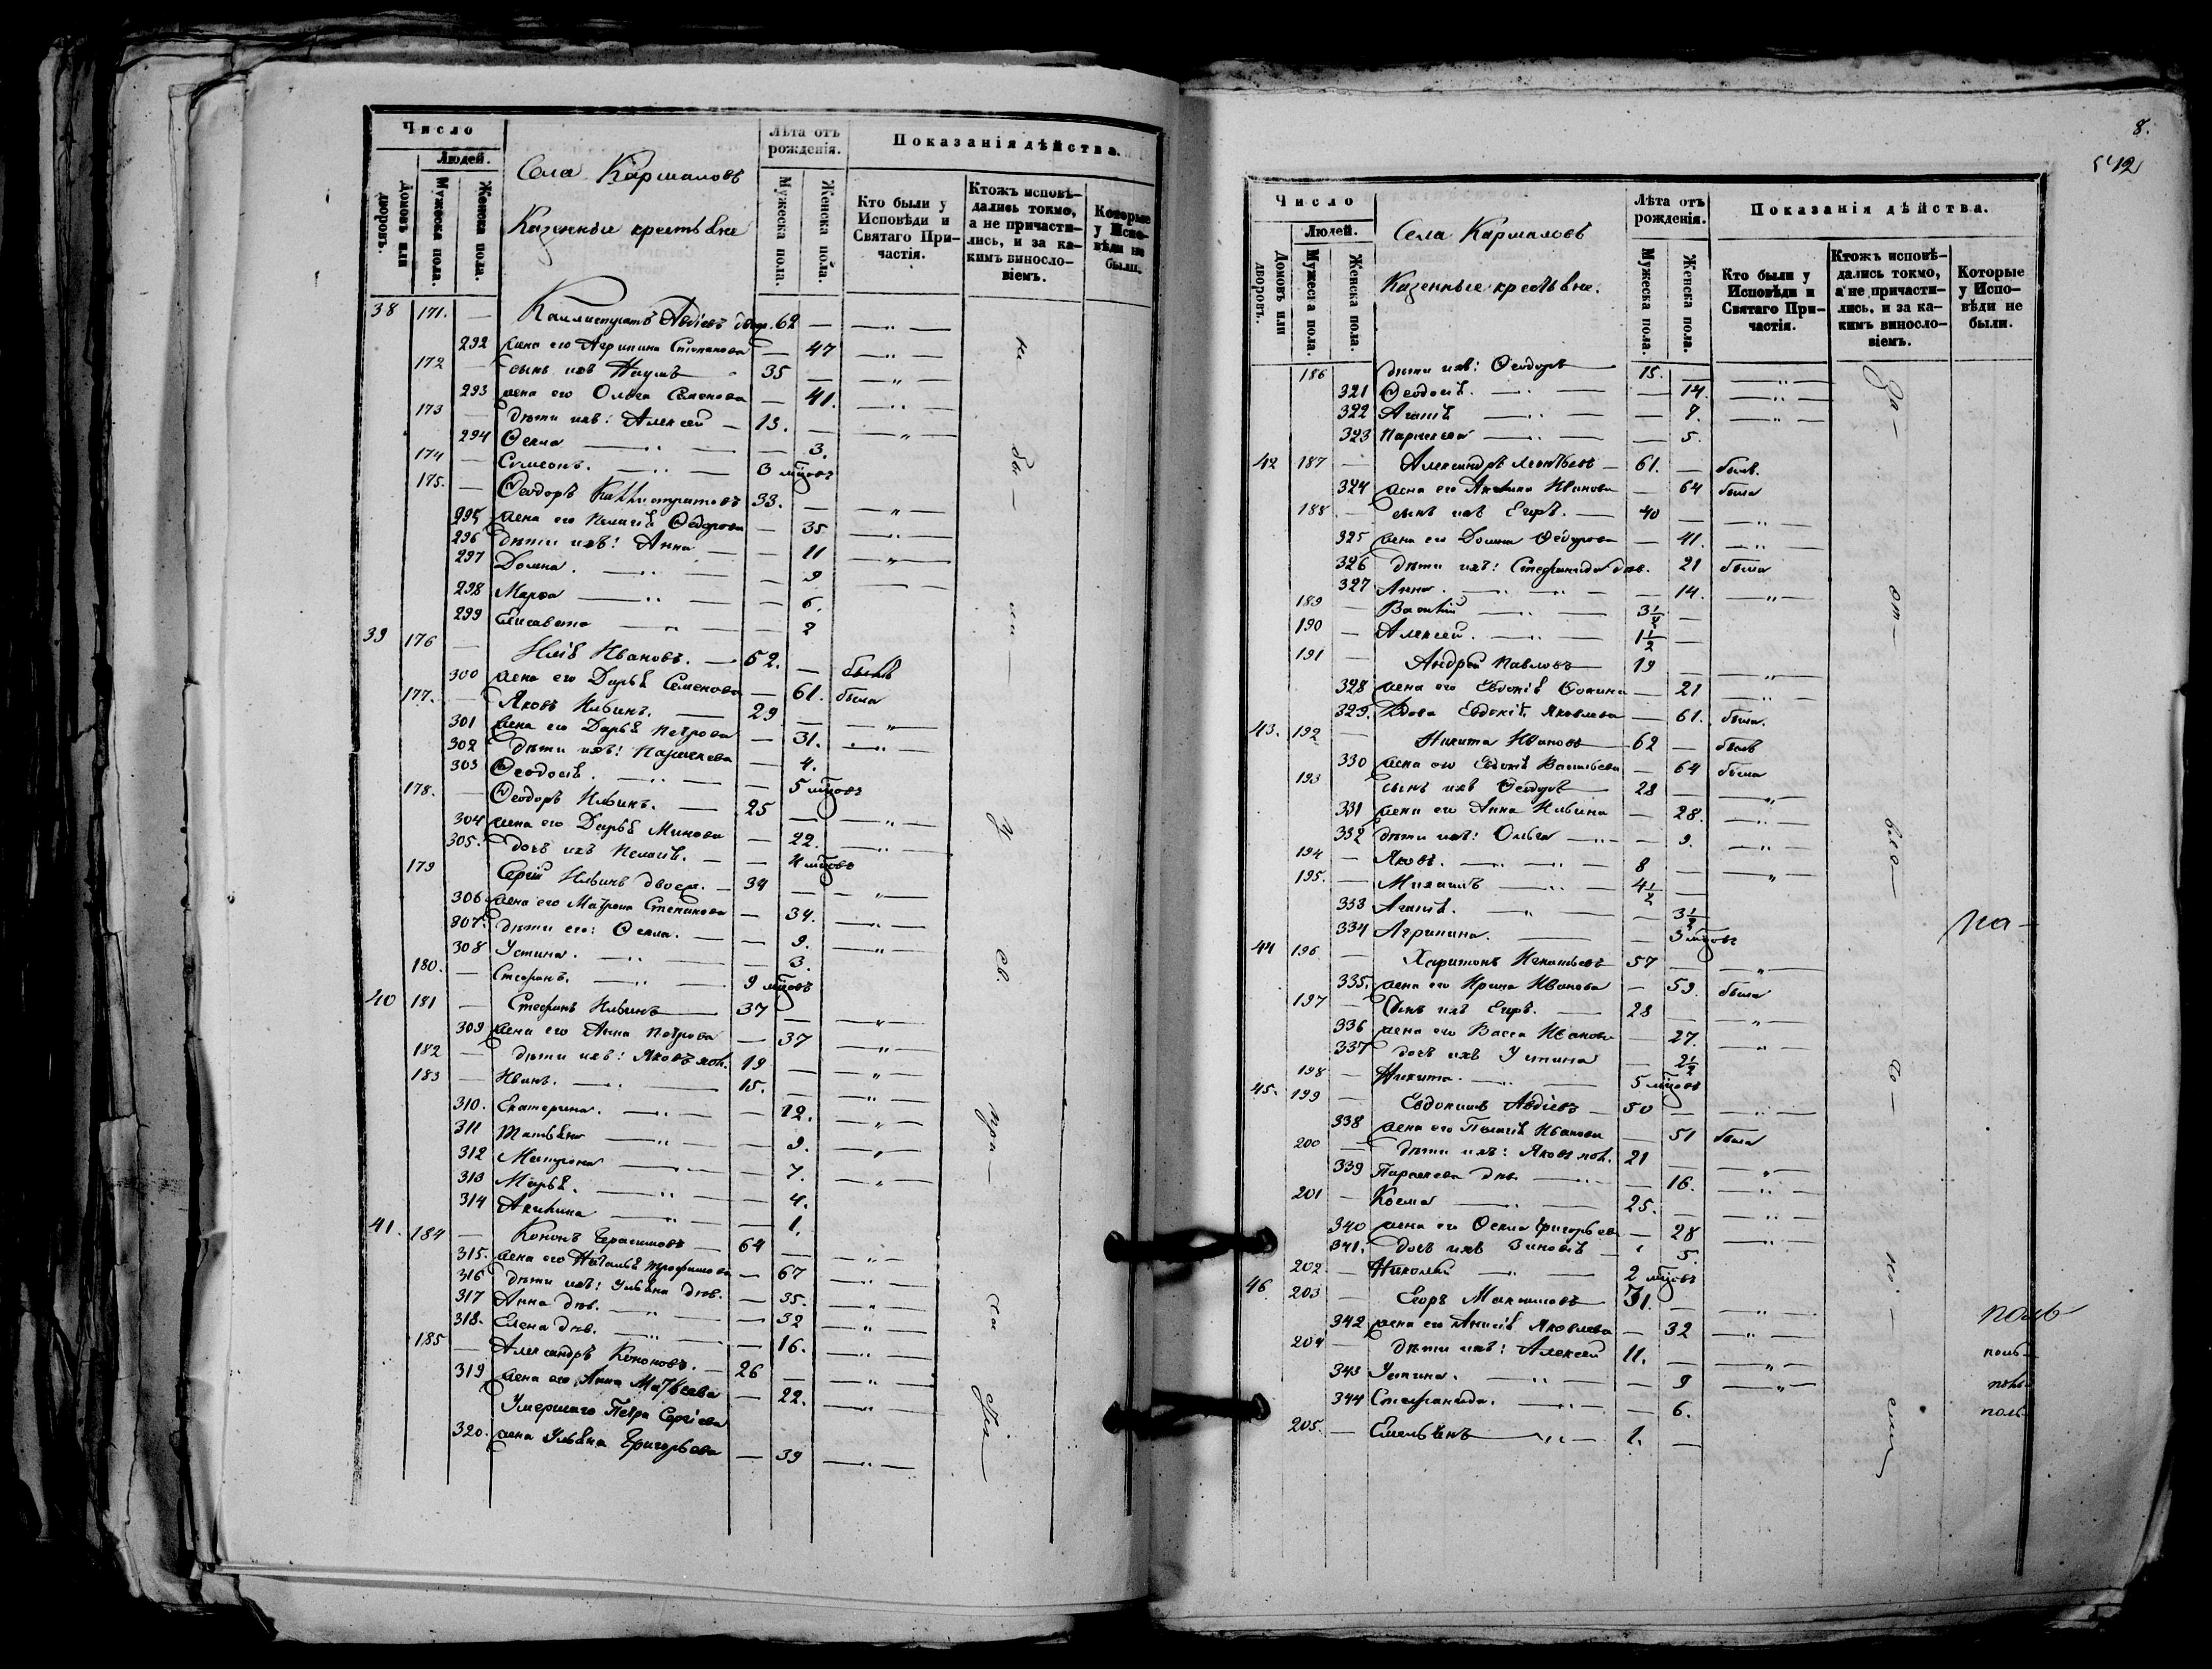 Число
Людей.
Домовъ или дворовъ.
Мужеска пола.
Женска пола.
Села Каршаловъ
Казенные крестьяне
Лѣта отъ рожденія.
Мужеска пола.
Женска пола.
Показанія дѣйства.
Кто были у Исповѣди и Святаго Причастія.
Ктожъ исповѣдались токмо, а не причастились, и за какимъ винословіемъ.
Которые у Исповѣди не были.
38 171. — Каллистратъ Авдіевъ двоер. 62 — — „ —
292 жена его Агрипина Степанова — 47 — „ —
172 — сынъ ихъ Наумъ 35 — — „ —
293 жена его Ольга Семенова — 41. — „ —
173 — дѣти ихъ: Алексей — 13. — — „ —
294 Ѳекла — „ — — 3.
174 — Сѵмеонъ. — „ — 3 мѣсяцовъ
175. — Ѳеодоръ Каллистратовъ 33. — — „ —
295 жена его Пелагія Ѳедорова — 35 — „ —
296 дѣти ихъ: Анна — — 11 — „ —
297 Домна. — „ — — 9 — —
298 Марѳа — „ — — 6.
299 Елисавета — „ — — 2
39 176 — Илія Ивановъ. — 62. — былъ
300 жена его Дарья Семенова — 61. была
177. — Яковъ Ильинъ. — 29 — — „ —
301 жена его Дарья Петрова — 31. — „ —
302 дѣти ихъ: Параскева — 4.
303 Ѳеодосія. — „ — — 5 мѣсяцовъ
178. — Ѳеодоръ Ильинъ. — 25 — — „ —
304 жена его Дарья Минова — 22. — „ —
305. дочь ихъ Пелагія. — — 4 мѣсяцовъ
179 Сергій Ильинъ двоер. — 34 — — „ —
306 жена его Матрона Степанова — 34. — „ —
307. дѣти его: Ѳекла. — — 9. — „ —
308 Устина. — „ — — 3.
180. — Стефанъ. — „ — 9 мѣсяцовъ
40 181 — Стефанъ Ильинъ 37 — — „ —
309 жена его Анна Петрова — 37 — „ —
182 — дѣти ихъ: Яковъ хол. 19 — — „ —
183 — Иванъ. — „ — 15. — — „ —
310. Екатерина. — „ — — 12. — „ —
311 Татьяна — „ — — 9. — „ —
312 Матрона — „ — — 7. — „ —
313 Марья. — „ — — 4.
314 Акилина — „ — — 1.
41. 184 — Кононъ Герасимовъ — 64 — — „ —
315. жена его Наталья Трофимова — 67 — „ —
316 дѣти ихъ: Ульяна двѣ. — 35. — „ —
317 Анна двѣ. — „ — — 32 — „ —
318. Елена двѣ. — „ — — 16. — „ —
185 — Александръ Кононовъ. — 26 — — „ —
319 жена его Анна Матвеева — 22. — „ —
Умершаго Петра Сергіева
320. жена Ульяна Григорьева — 39 — „ —
8.
542
Число
Людей.
Домовъ или дворовъ.
Мужеска пола.
Женска пола.
Села Каршаловъ
Казенные крестьяне.
Лѣта отъ рожденія.
Мужеска пола.
Женска пола.
Показанія дѣйства.
Кто были у Исповѣди и Святаго Причастія.
Ктожъ исповѣдались токмо, а не причастились, и за какимъ винословіемъ.
Которые у Исповѣди не были.
186 дѣти ихъ: Ѳеодоръ 15. — — „ —
321 Ѳеодосія. — „ — — 14. — „ —
322 Агапія — „ — — 7. — „ —
323 Параскева — „ — — 5.
42 187 — Александръ Леонтьевъ — 61. — былъ.
324 жена его Ивановна — 64 была
188. — сынъ ихъ Егоръ. — 40 — — „ —
325 жена его Домна Ѳедорова — 41. — „ —
326 дѣти ихъ: Стефанида двѣ. 21 была
327 Анна. — „ — — 14. — „ —
189 — Василій — „ — 3½ —
190 — Алексей. — „ — 1½ —
191 — Андрей Павловъ 19 — — „ —
328 жена его Евдокія Ѳомина — 21 — „ —
329. Вдова Евдокія Яковлева — 61. была.
43. 192 — Никита Ивановъ 62 — былъ
330 жена его Евдокія Васильева — 64 была
193 — сынъ ихъ Ѳеодоръ 28 — — „ —
331 жена его Анна Ильина — 28. — „ —
332 дѣти ихъ: Ольга — „ — — 9. — „ —
194 — Яковъ. — „ — „ — 8 — — „ —
195. — Михаилъ — „ — 4½ —
333 Агапія. — „ — — 3½
334 Агрипина. — — 3 мѣсяцовъ
44 196 — Харитонъ Игнатьевъ 57 — — „ —
335. жена его Ирина Иванова — 59. была
197 — Сынъ ихъ Егоръ. — 28 — — „ —
336 жена его Васса Иванова — 27. — „ —
337 дочь ихъ Устина — 2½
198 — Никита. — „ — 5 мѣсяцовъ
45. 199 — Евдокимъ Авдіевъ — 50 — — „ —
338 жена его Пелагія Иванова — 51 была
200 — дѣти ихъ: Яковъ хол. 21 — — „ —
339 Параскева двѣ. — „ — — 16. — „ —
201 — Косма — „ — 25. — — „ —
340 жена его Ѳекла Григорьева — 28 — „ —
341. дочь ихъ Зиновія — 5.
202. — Николай — „ — 2 мѣсяцовъ
46 203 — Егоръ Максимовъ 31. — — „ —
342 жена его Анисія Яковлева — 32 — „ —
204 — дѣти ихъ: Алексей 11. — — „ —
343 Устина. — „ — — 9 — „ —
344 Стефанида. — „ — — 6.
205. — Емельянъ — „ — 1. —